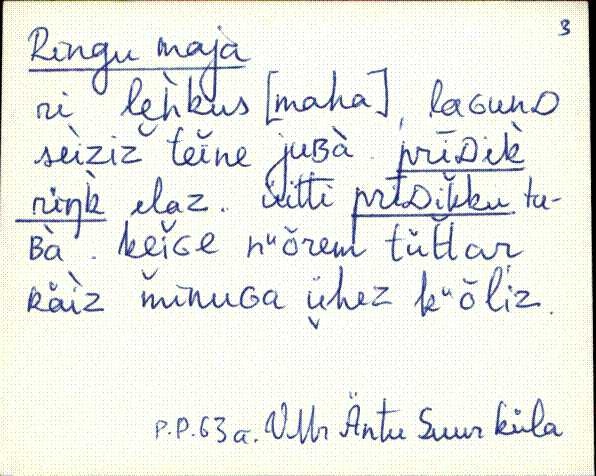 3
Ringu maja
ri lèh̀kus [maha], laGunD
sèiziž tèĭne juBà. prīDèk̀
riŋk̀ elaz. üitti prīDik̆ku tu-
Bà. kèĭGe nᵘŏrem tüt̆tar
Răìz mĭnuGa ühez kᵘŏliz.
P.P. 63a. VMr Äntu Suurküla